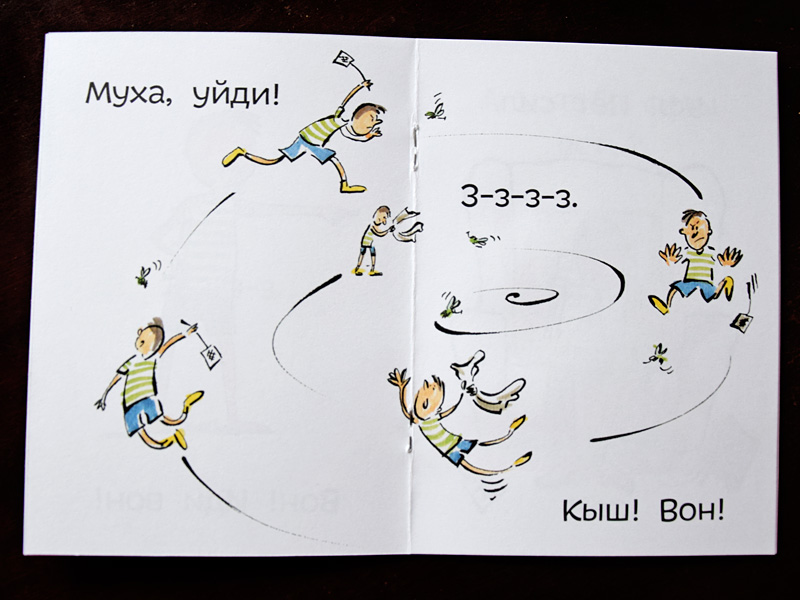 Муха, уйди!
З-з-з-з.
Кыш! Вон!